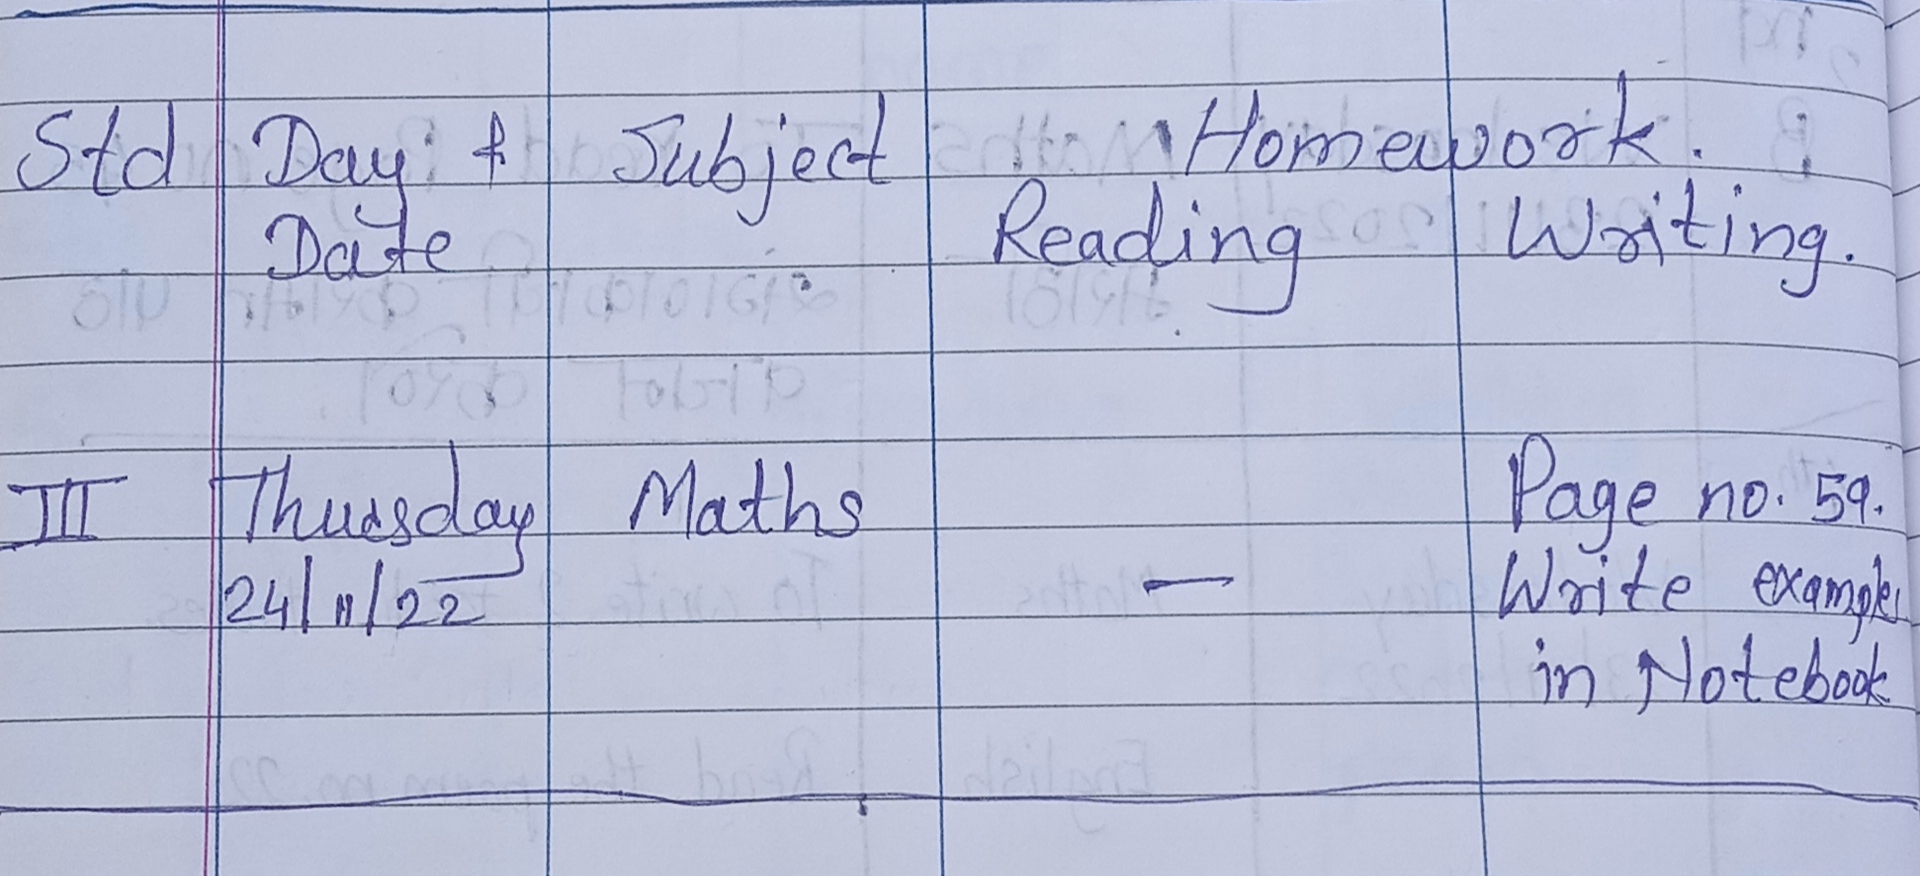 Std Day & Subject Homework.
Date Reading Writing.
III Thursday Maths Page no. 59.
24/11/22 — Write examples
in Notebook